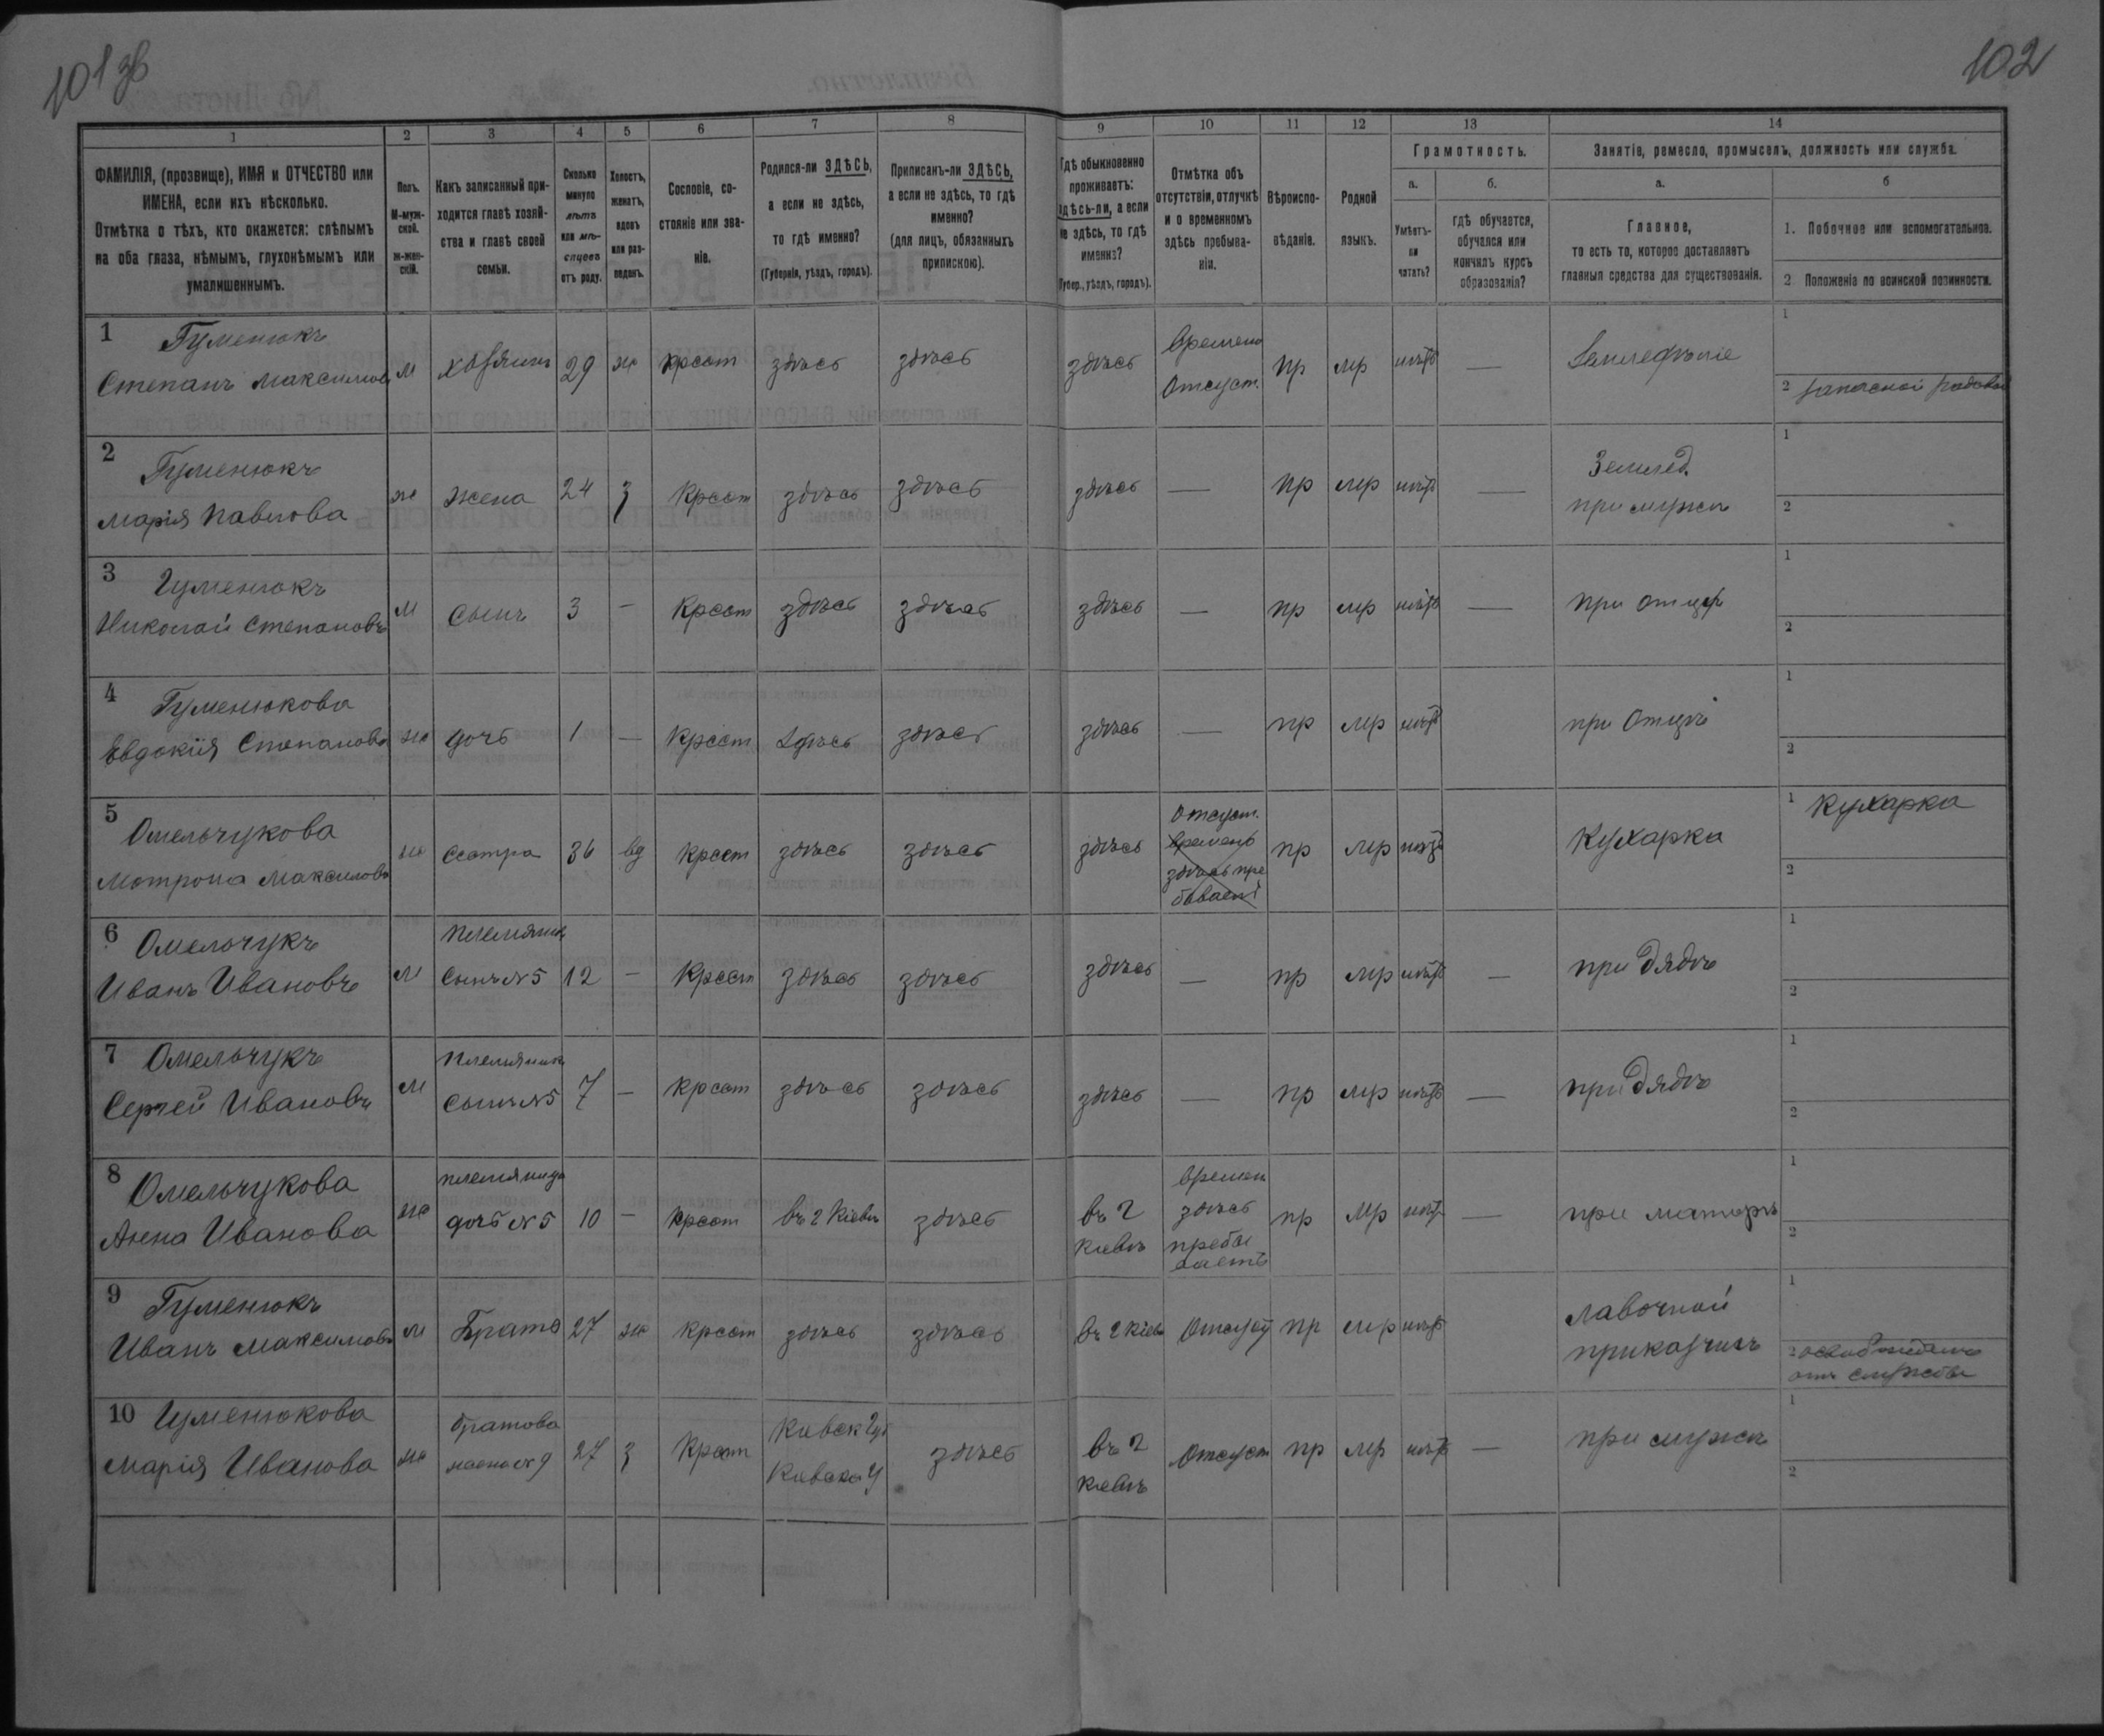 101 зв
102
1 2 3 4 5 6 7 8 9 10 11 12 13 14
ФАМИЛІЯ, (прозвище), ИМЯ и ОТЧЕСТВО или
ИМЕНА, если ихъ нѣсколько.
Отмѣтка о тѣхъ, кто окажется: слѣпымъ
на оба глаза, нѣмымъ, глухонѣмымъ или
умалишеннымъ.
Полъ.
М-муж-
ской.
ж-жен-
скій.
Какъ записанный при-
ходится главѣ хозяй-
ства и главѣ своей
семьи.
Сколько
минуло
лѣтъ
или мѣ-
сяцевъ
отъ роду.
Холостъ,
женатъ,
вдовъ
или раз-
веденъ.
Сословіе, со-
стояніе или зва-
ніе.
Родился-ли ЗДѢСЬ,
а если не здѣсь,
то гдѣ именно?
(Губернія, уѣздъ, городъ).
Приписанъ-ли ЗДѢСЬ,
а если не здѣсь, то гдѣ
именно?
(для лицъ, обязанныхъ
припискою).
Гдѣ обыкновенно
проживаетъ:
здѣсь-ли, а если
не здѣсь, то гдѣ
именно?
(Губер., уѣздъ, городъ).
Отмѣтка объ
отсутствіи, отлучкѣ
и о временномъ
здѣсь пребыва-
ніи.
Вѣроиспо-
вѣданіе.
Родной
языкъ.
Грамотность.
а.
Умѣетъ-
ли
читать?
б.
гдѣ обучается,
обучался или
кончилъ курсъ
образованія?
Занятіе, ремесло, промыселъ, должность или служба.
а.
Главное,
то есть то, которое доставляетъ
главныя средства для существованія.
б
1. Побочное или вспомогательное.
2 Положеніе по воинской повинности.
1 Гуменюкъ
Степанъ Максимовъ м хозяинъ 29 ж крест здѣсь здѣсь здѣсь
Времено
Отсуст. пр мр нѣтъ — Земледѣліе
1
2 запасной рядовой
2 Гуменюкъ
Марія Павлова ж жена 24 з Крест здѣсь здѣсь здѣсь — пр мр нѣтъ —
Землед.
при мужѣ
1
2
3 Гуменюкъ
Николай Степановъ м Сынъ 3 — Крест здѣсь здѣсь здѣсь — пр мр нѣтъ — при отцѣ
1
2
4 Гуменюкова
Евдокія Степанова ж дочь 1 — Крест здѣсь здѣсь здѣсь — пр мр нѣтъ при Отцѣ
1
2
5 Омельчукова
Мотрона Максимова ж Сестра 36 вд Крест здѣсь здѣсь здѣсь
Отсуст.
времень
здѣсь пре
бываетъ
пр мр нѣтъ Кухарка
1 Кухарка
2
6 Омельчукъ
Иванъ Ивановъ м
племяник
Сынъ №5 12 — Крест здѣсь здѣсь здѣсь — пр мр нѣтъ — при дядѣ
1
2
7 Омельчукъ
Сергей Ивановъ м
Племяник
Сынъ №5 7 — крест здѣсь здѣсь здѣсь — пр мр нѣтъ — при дядѣ
1
2
8 Омельчукова
Анна Иванова ж
племяница
дочь №5 10 — крест въ г Кіевѣ здѣсь
въ г
Киевѣ
Времен
здѣсь
пребы
ваетъ
пр мр нѣт — при матерѣ
1
2
9 Гуменюкъ
Иванъ Максимовъ м Братъ 27 ж крест здѣсь здѣсь въ г Кіевѣ Отсуст пр мр нѣтъ
лавочной
приказчикъ
1
2 освобожденъ
отъ службы
10 Гуменюкова
Марія Иванова ж
братова
жена №9 27 з Крест
Киевск Губ
Киевска У
здѣсь
въ г
Киевѣ
Отсуст пр мр нѣтъ — при мужѣ
1
2